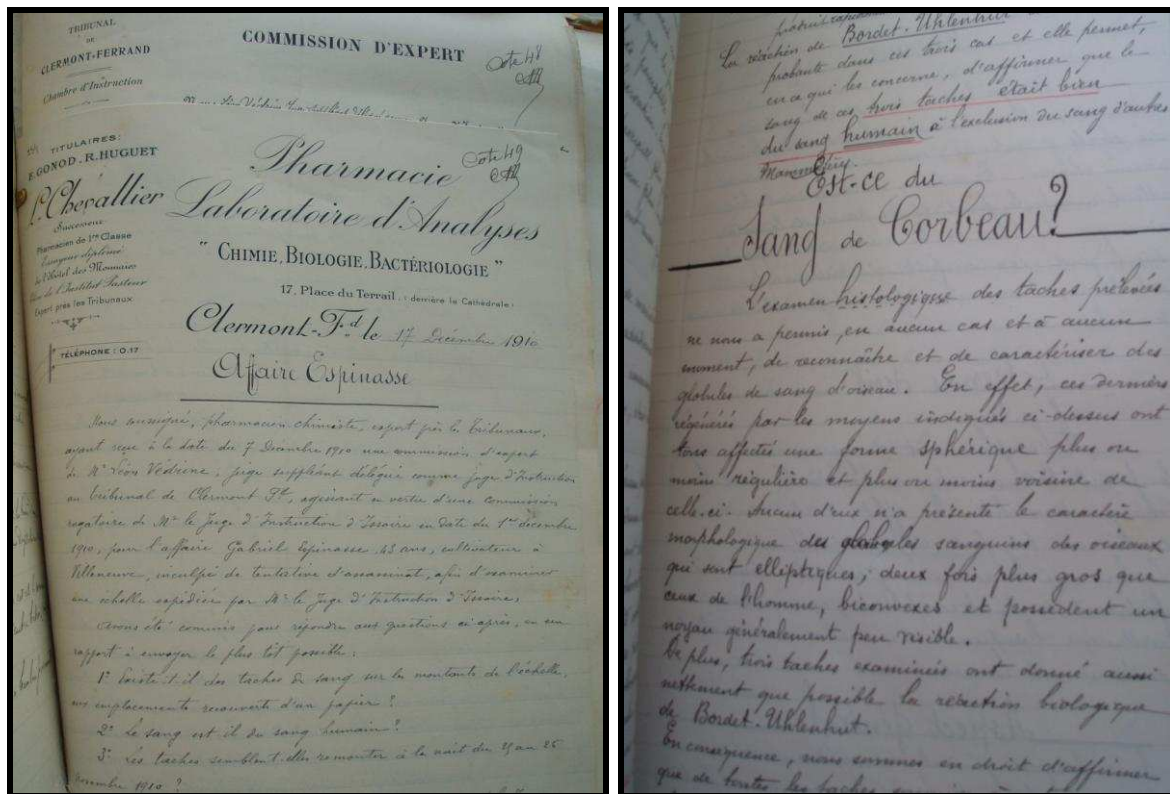 TRIBUNAL
DE
CLERMONT-FERRAND
Chambre d'Instruction
COMMISSION D'EXPERT
Cote 48
TITULAIRES:
E.GONOD.R.HUGUET
L. Chevallier
Successeur
Pharmacien de 1re Classe
Essayeur diplômé
de l'Hôtel des Monnaies
Elève de l'Institut Pasteur
Expert près les Tribunaux
TÉLÉPHONE: 0.17
Pharmacie
Cote 49
Laboratoire d'Analyses
"CHIMIE, BIOLOGIE, BACTÉRIOLOGIE"
17, Place du Terrail, (derrière la Cathédrale)
Clermont-Fd le 17 Décembre 1910
Affaire Espinasse
Nous soussigné, pharmacien-chimiste, expert près les tribunaux,
ayant reçu à la date du 7 Décembre 1910 une commission d'expert
de Mr Léon Védrine, juge suppléant délégué comme juge d'Instruction
au tribunal de Clermont Fd, agissant en vertu d'une commission
rogatoire de Mr le Juge d'Instruction d'Issoire en date du 1er décembre
1910, pour l'affaire Gabriel Espinasse, 43 ans, cultivateur à
Villeneuve, inculpé de tentative d'assassinat, afin d'examiner
une échelle expédiée par Mr le Juge d'Instruction d'Issoire,
Avons été commis pour répondre aux questions ci-après, en un
rapport à envoyer le plus tôt possible:
1° Existe-t-il des taches de sang sur les montants de l'échelle,
aux emplacements recouverts d'un papier?
2° le sang est-il du sang humain?
3° Les taches semblent-elles remonter à la nuit du 25 au 26
novembre 1910?
La réaction de Bordet-Uhlenhut
probante dans ces trois cas et elle permet,
en ce qui les concerne, d'affirmer que le
sang de ces trois taches était bien
du sang humain à l'exclusion du sang d'autres
Mammifères.
Est-ce du
Sang de Corbeau?
L'examen histologique des taches prélevées
ne nous a permis, en aucun cas et à aucun
moment, de reconnaître et de caractériser des
globules de sang d'oiseau. En effet, ces derniers
régénérés par les moyens indiqués ci-dessus ont
tous affecté une forme sphérique plus ou
moins régulière et plus ou moins voisine de
celle-ci. Aucun d'eux n'a présenté le caractère
morphologique des globules sanguins des oiseaux
qui sont elliptiques, deux fois plus gros que
ceux de l'homme, biconvexes et possèdent un
noyau généralement peu visible.
De plus, trois taches examinées ont donné aussi
nettement que possible la réaction biologique
de Bordet-Uhlenhut.
En conséquence, nous sommes en droit d'affirmer
que de toutes les taches